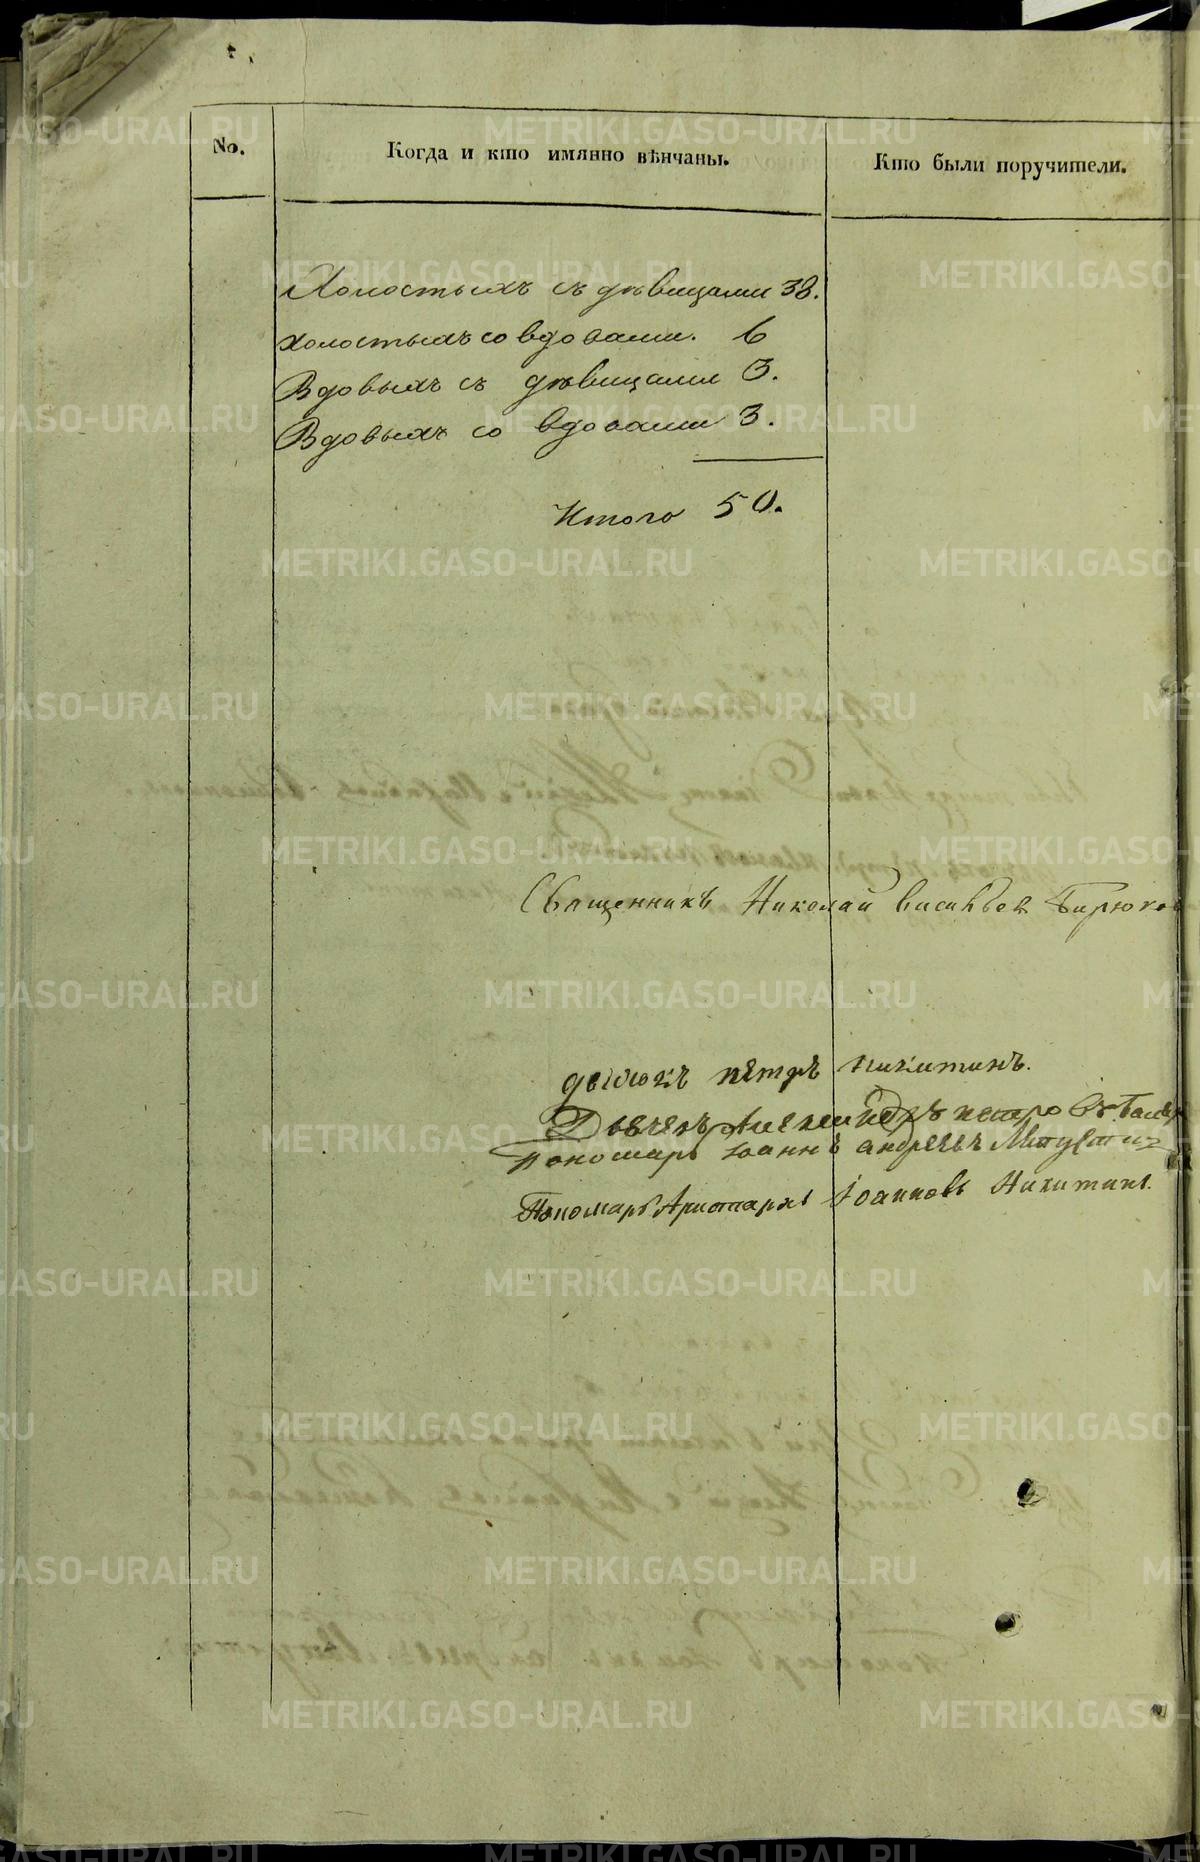 No.
Когда и кто имянно вѣнчаны.
Кто были поручители.
Холостыхъ съ дѣвицами 38.
холостыхъ со вдовами. 6
Вдовыхъ съ дѣвицами 3.
Вдовыхъ со вдовами 3.
Итого 50.
Священникъ Николай Васильев Бирюков
Петръ Никитинъ.
Дьячекъ Александръ
Пономарь Iоаннъ андреевъ
Пономарь Аристархъ Iоанновъ Никитинъ.
METRIKI.GASO-URAL.RU